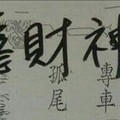 財神
專車
孤尾